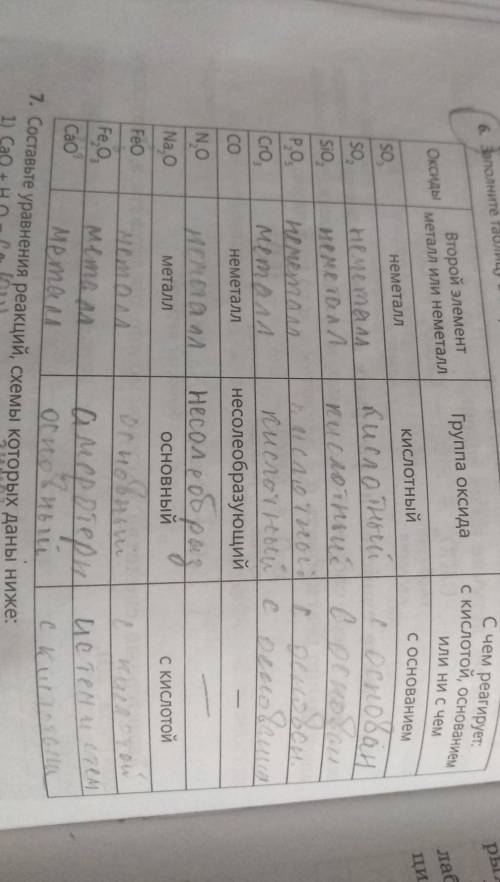 6. Заполните таблицу
Оксиды | Второй элемент металл или неметалл | Группа оксида | С чем реагирует: с кислотой, основанием или ни с чем
SO₃ | неметалл | кислотный | с основанием
SO₂ | неметалл | кислотный | с основан
SiO₂ | неметалл | кислотный | с основан
P₂O₅ | неметалл | кислотный | с основан
CrO₃ | металл | кислотный | с основания
CO | неметалл | несолеобразующий | —
N₂O | неметалл | несолеобраз | —
Na₂O | металл | основный | с кислотой
FeO | металл | основный | с кислотой
Fe₂O₃ | металл | амфотерн | и с тем и с тем
CaO | металл | основный | с
7. Составьте уравнения реакций, схемы которых даны ниже:
1) CaO + H